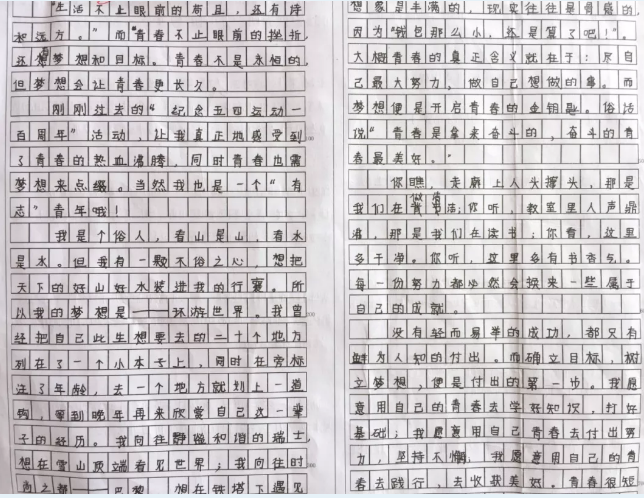 "生活不止眼前的苟且，还有诗
和远方。"而"青春不止眼前的挫折，
还有梦想和目标。青春不是永恒的，
但梦想会让青春更长久。
刚刚过去的"纪念五四运动一
百周年"活动，让我真正地感受到
了青春的热血沸腾，同时青春也需
梦想来点缀。当然我也是一个"有
志"青年哦！
我是个俗人，看山是山，看水
是水。但我有一颗不俗之心，想把
天下的好山好水装进我的行囊。所
以我的梦想是——环游世界。我曾
经把自己此生想要去的二十个地方
列在了一个小本子上，同时在旁标
注了年龄，去一个地方就划上一道
钩，等到晚年再来欣赏自己这一辈
子的经历。我向往静谧和谐的瑞士，
想在雪山顶端看见世界；我向往时
尚之都——巴黎，想在铁塔下遇见
想象是丰满的，现实往往是骨感的，
因为"我包那么小，还是算了吧！"。
大概青春的真正含义就在于：尽自
己最大努力，做自己想做的事。而
梦想便是开启青春的金钥匙。俗话
说"青春是拿来奋斗的，奋斗的青
春最美好。"
你瞧，走廊上人头攒头，那是
我们在背书；你听，教室里人声鼎
沸，那是我们在读书；你看，这里
多干净。你听，这里多有书香与。
每一份努力都必然会换来一些属于
自己的成就。
没有轻而易举的成功，都只有
鲜为人知的付出。而确立目标，树
立梦想，便是付出的第一步。我愿
意用自己的青春去学好知识，打好
基础；我愿意用自己青春去付出努
力，坚持不懈，我愿意用自己的青
春去践行，去收获美好。青春很短